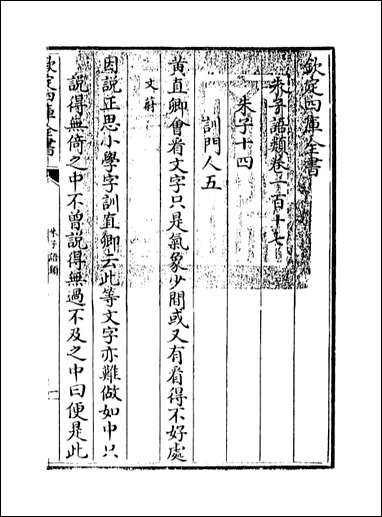 欽定四庫全書
朱子語類卷一百十七
朱子十四
訓門人五
黄直卿會看文字只是氣象少間或又有看得不好處
文蔚
因説正思小學字訓直卿云此等文字亦難做如中只
説得無倚之中不曾説得無過不及之中曰便是此
欽定四庫全書
朱子語類
一